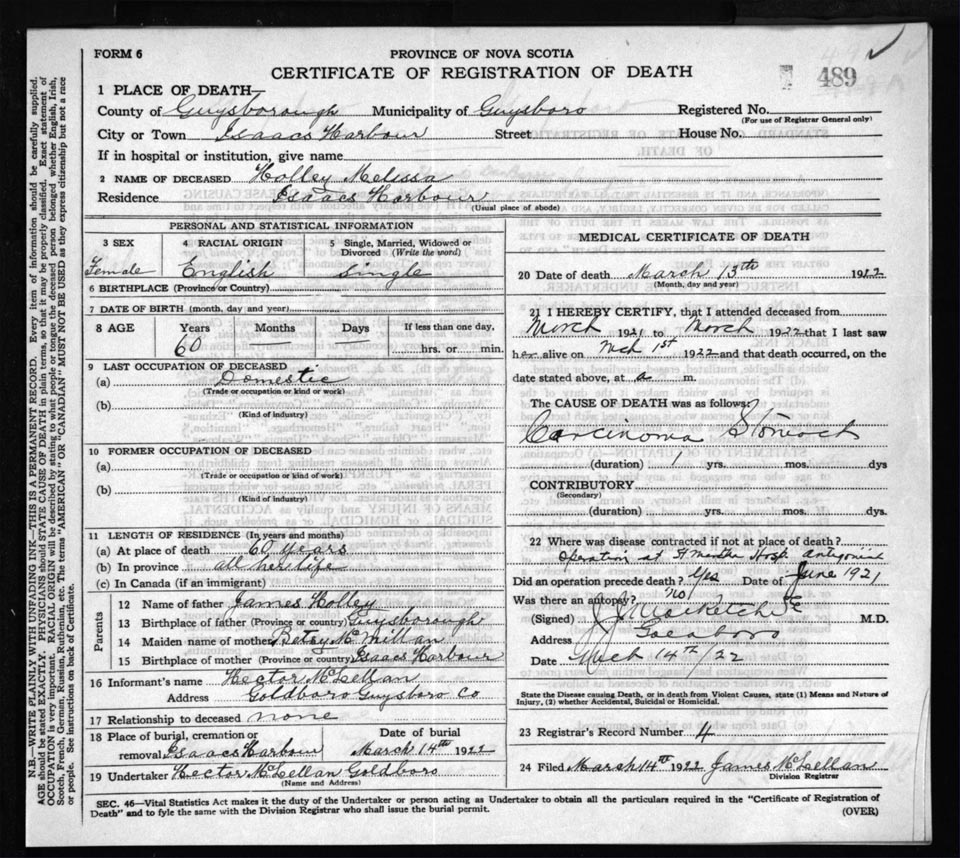 FORM 6
PROVINCE OF NOVA SCOTIA
CERTIFICATE OF REGISTRATION OF DEATH
489
1 PLACE OF DEATH
County of Guysborough Municipality of Guysboro Registered No.
(For use of Registrar General only)
City or Town Isaacs Harbour Street House No.
If in hospital or institution, give name
2 NAME OF DECEASED Holley Melissa
Residence Isaacs Harbour
(Usual place of abode)
PERSONAL AND STATISTICAL INFORMATION
3 SEX 4 RACIAL ORIGIN 5 Single, Married, Widowed or Divorced (Write the word)
Female English Single
6 BIRTHPLACE (Province or Country)
7 DATE OF BIRTH (month, day and year)
8 AGE Years Months Days If less than one day,
60 hrs. or min.
9 LAST OCCUPATION OF DECEASED
(a) Domestic
(Trade or occupation or kind or work)
(b)
(Kind of industry)
10 FORMER OCCUPATION OF DECEASED
(a)
(Trade or occupation or kind of work)
(b)
(Kind of industry)
11 LENGTH OF RESIDENCE (In years and months)
(a) At place of death 60 years
(b) In province all her life
(c) In Canada (if an immigrant)
Parents
12 Name of father James Holley
13 Birthplace of father (Province or country) Guysborough
14 Maiden name of mother Betsy McMillan
15 Birthplace of mother (Province or country) Isaacs Harbour
16 Informant's name Hector McLellan
Address Goldboro Guysboro Co
17 Relationship to deceased none
18 Place of burial, cremation or Date of burial
removal Isaacs Harbour March 14th 1922
19 Undertaker Hector McLellan Goldboro
(Name and Address)
MEDICAL CERTIFICATE OF DEATH
20 Date of death March 13th 1922
(Month, day and year)
21 I HEREBY CERTIFY, that I attended deceased from
March 1921 to March 1922 that I last saw
her alive on Mch 1st 1922 and that death occurred, on the
date stated above, at a m.
The CAUSE OF DEATH was as follows:
Carcinoma Stomach
(duration) 1 yrs. mos. dys
CONTRIBUTORY
(Secondary)
(duration) yrs. mos. dys
22 Where was disease contracted if not at place of death?
Operation at St Martha Hosp Antigonish
Did an operation precede death? Yes Date of June 1921
Was there an autopsy? No
(Signed) M.D.
Address Goldboro
Date Mch 14th/22
State the Disease causing Death, or in death from Violent Causes, state (1) Means and Nature of
Injury, (2) whether Accidental, Suicidal or Homicidal.
23 Registrar's Record Number 4
24 Filed March 14th 1922 James McLellan
Division Registrar
SEC. 46—Vital Statistics Act makes it the duty of the Undertaker or person acting as Undertaker to obtain all the particulars required in the "Certificate of Registration of
Death" and to fyle the same with the Division Registrar who shall issue the burial permit. (OVER)
N.B.—WRITE PLAINLY WITH UNFADING INK—THIS IS A PERMANENT RECORD. Every item of information should be carefully supplied.
AGE should be stated EXACTLY. PHYSICIANS should STATE CAUSE OF DEATH in plain terms, so that it may be properly classified. Exact statement of
OCCUPATION is very important. RACIAL ORIGIN will be described by stating to what people or tongue the deceased person belonged whether English, Irish,
Scotch, French, German, Russian, Ruthenian, etc. The terms "AMERICAN" OR "CANADIAN" MUST NOT BE USED as they express citizenship but not a race
or people. See instructions on back of Certificate.